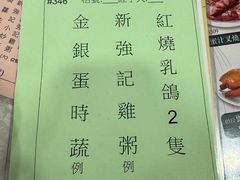 #346
紅燒乳鴿2隻
新強記雞粥例
金銀蛋時蔬例
蜜汁叉燒